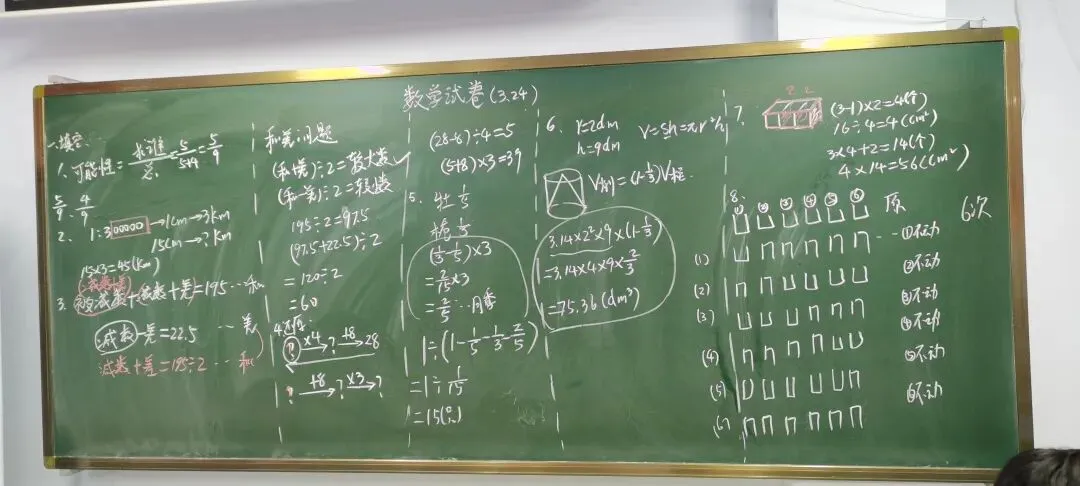 数学试卷(3.24)
一.填空.
1. 可能性=求谁/总=5/(5+4)=5/9
5/9、4/9
2. 1:300000→1cm→3km
15cm→?km
15×3=45(km)
被减数
3. 减数+差=195…和
减数-差=22.5…差
减数+差=195÷2…和
和差问题
(和+差)÷2=较大数✓
(和-差)÷2=较小数
195÷2=97.5
(97.5+22.5)÷2
=120÷2
=60
4.
? ×4→? +8→28
? +8→? ×3→?
(28-8)÷4=5
(5+8)×3=39
5. 牡 1/3
栀 1/5
(1/3-1/5)×3
=2/15×3
=2/5…月季
1÷(1-1/5-1/3-2/5)
=1÷1/15
=15(个)
6. r=2dm
h=9dm
V=Sh=πr²h
V削=(1-1/3)V柱.
3.14×2²×9×(1-1/3)
=3.14×4×9×2/3
=75.36(dm³)
7.
2 2
(3-1)×2=4(个)
16÷4=4(cm²)
3×4+2=14(个)
4×14=56(cm²)
8.
① ② ③ ④ ⑤ ⑥ 原 6次
(1) …①不动
(2) ②不动
(3) ③不动
(4) ④不动
(5) ⑤不动
(6) ⑥不动